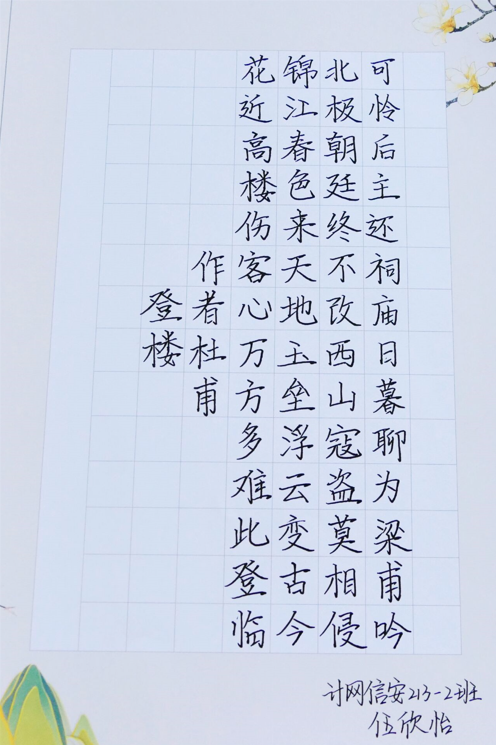 登楼
作者杜甫
花近高楼伤客心万方多难此登临
锦江春色来天地玉垒浮云变古今
北极朝廷终不改西山寇盗莫相侵
可怜后主还祠庙日暮聊为梁甫吟
计网信安213-2班
伍欣怡